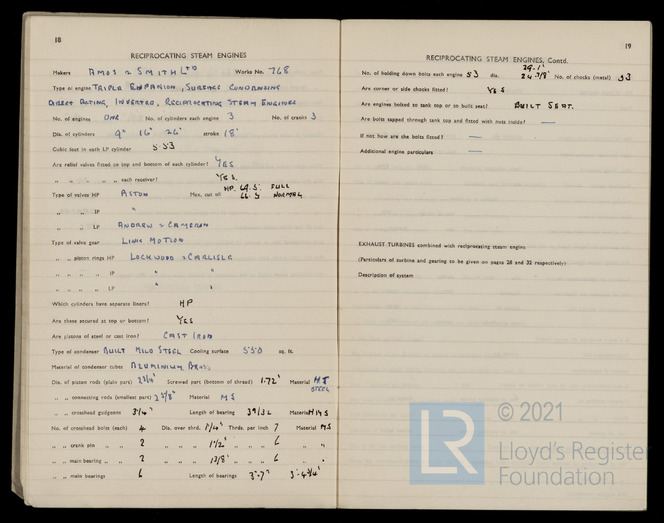 18
RECIPROCATING STEAM ENGINES
Makers AMOS & SMITH LTD Works No. 768
Type of engine TRIPLE EXPANSION, SURFACE CONDENSING
DIRECT ACTING, INVERTED, RECIPROCATING STEAM ENGINES
No. of engines ONE No. of cylinders each engine 3 No. of cranks 3
Dia. of cylinders 9" 16" 26" stroke 18"
Cubic feet in each LP cylinder 5.53
Are relief valves fitted on top and bottom of each cylinder? YES
„ „ „ „ „ each receiver? YES.
Type of valves HP PISTON Max. cut off HP. 69.5. FULL
66.5 NORMAL
„ „ IP "
„ „ LP ANDREW & CAMERON
Type of valve gear LINK MOTION
„ „ piston rings HP LOCKWOOD & CARLISLE
„ „ „ IP " "
„ „ „ LP " "
Which cylinders have separate liners? HP
Are these secured at top or bottom? YES
Are pistons of steel or cast iron? CAST IRON
Type of condenser BUILT MILD STEEL Cooling surface 550 sq. ft.
Material of condenser tubes ALUMINIUM BRASS.
Dia. of piston rods (plain part) 2 3/4" Screwed part (bottom of thread) 1.72" Material H.T STEEL
„ „ connecting rods (smallest part) 2 5/8" Material MS
„ „ crosshead gudgeons 3 1/4" Length of bearing 3 9/32 Material HMS
No. of crosshead bolts (each) 4 Dia. over thrd. 1 1/4" Thrds. per inch 7 Material MS
„ „ crank pin „ „ 2 „ „ „ 1 1/2" „ „ „ 6 „ "
„ „ main bearing „ „ 2 „ „ „ 1 3/8" „ „ „ 6 „ "
„ „ main bearings 6 Length of bearings
19
RECIPROCATING STEAM ENGINES, Contd.
No. of holding down bolts each engine 53 dia. No. of chocks (metal) 53
Are corner or side chocks fitted? YES
Are engines bolted to tank top or to built seat? BUILT SEAT.
Are bolts tapped through tank top and fitted with nuts inside? —
If not how are the bolts fitted? —
Additional engine particulars —
EXHAUST TURBINES combined with reciprocating steam engine
(Particulars of turbine and gearing to be given on pages 28 and 32 respectively)
Description of system
LR
© 2021
Lloyd's Register
Foundation